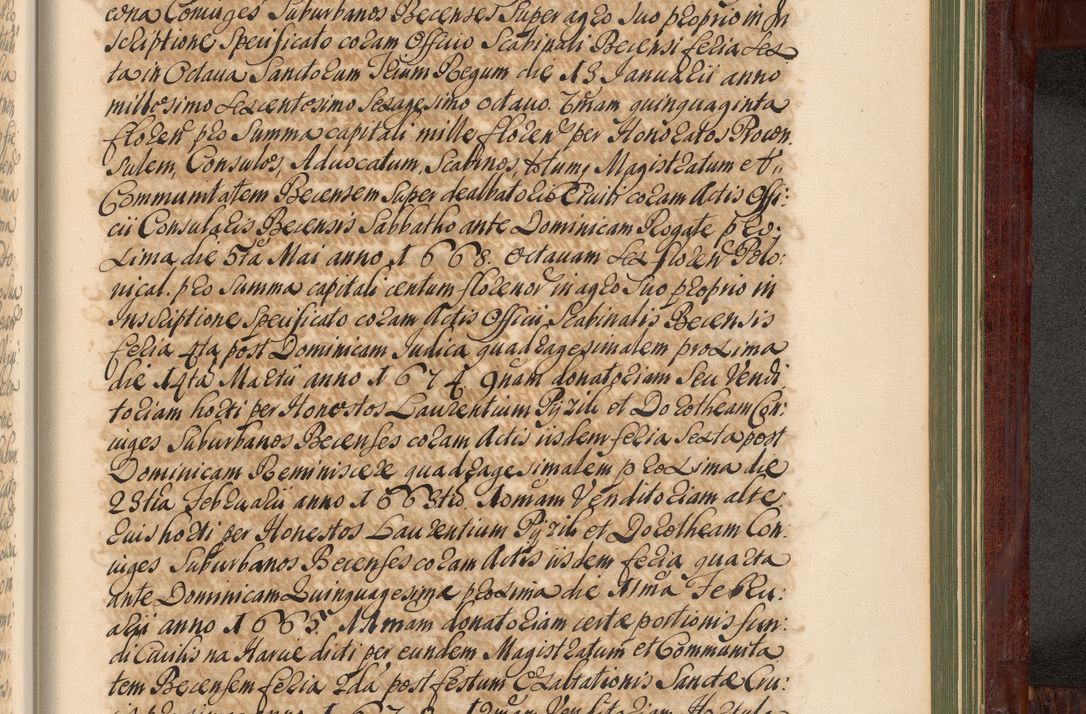 cona Coniuges Suburbanos Becenses Super agro Suo proprio in In
scriptione Specificato coram Officio Scabinali Becensi feria Sex
ta in Octaua Sanctorum Trium Regum die 13 Januarii anno
millesimo sexcentesimo sexagesimo octauo. 7mam quinquaginta
floren pro Summa capitali mille floren per Honoratos Procon
sulem, Consules, Aduocatum, Scabinos, totumq Magistratum et
Communitatem Becensem Super dealbatorio Eruit coram Actis Offi:
cii Consularis Becensis Sabbatho ante Dominicam Rogate pro:
xima die 5ta Mai anno 1668. Octauam Sex floren Polo:
nical. pro Summa capitali centum florenor in agro Suo proprio in
Inscriptione Specificato coram Actis Officii Scabinalis Becensis
feria 4ta post Dominicam Judica quadragesimalem proxima
die 14ta Martii anno 1674 9nam donatoriam Seu Vendi
toriam horti per Honestos Laurentium Pyzik et Dorotheam Con:
iuges Suburbanos Becenses coram Actis iisdem feria Sexta post
Dominicam Reminiscere quadragesimalem proxima die
23tia Februarii anno 1663tio. 10mam Venditoriam alte:
rius horti per Honestos Laurentium Pyzik et Dorotheam Con:
iuges Suburbanos Becenses coram Actis iisdem feria quarta
ante Dominicam Quinquagesima proxima die 11ma Febru:
arii anno 1665. 11mam donatoriam certæ portionis fun:
di Ciuilis na Harcie dicti per eundem Magistratum et Communita
tem Becensem feria 2da post festum Exaltationis Sanctæ Cru: